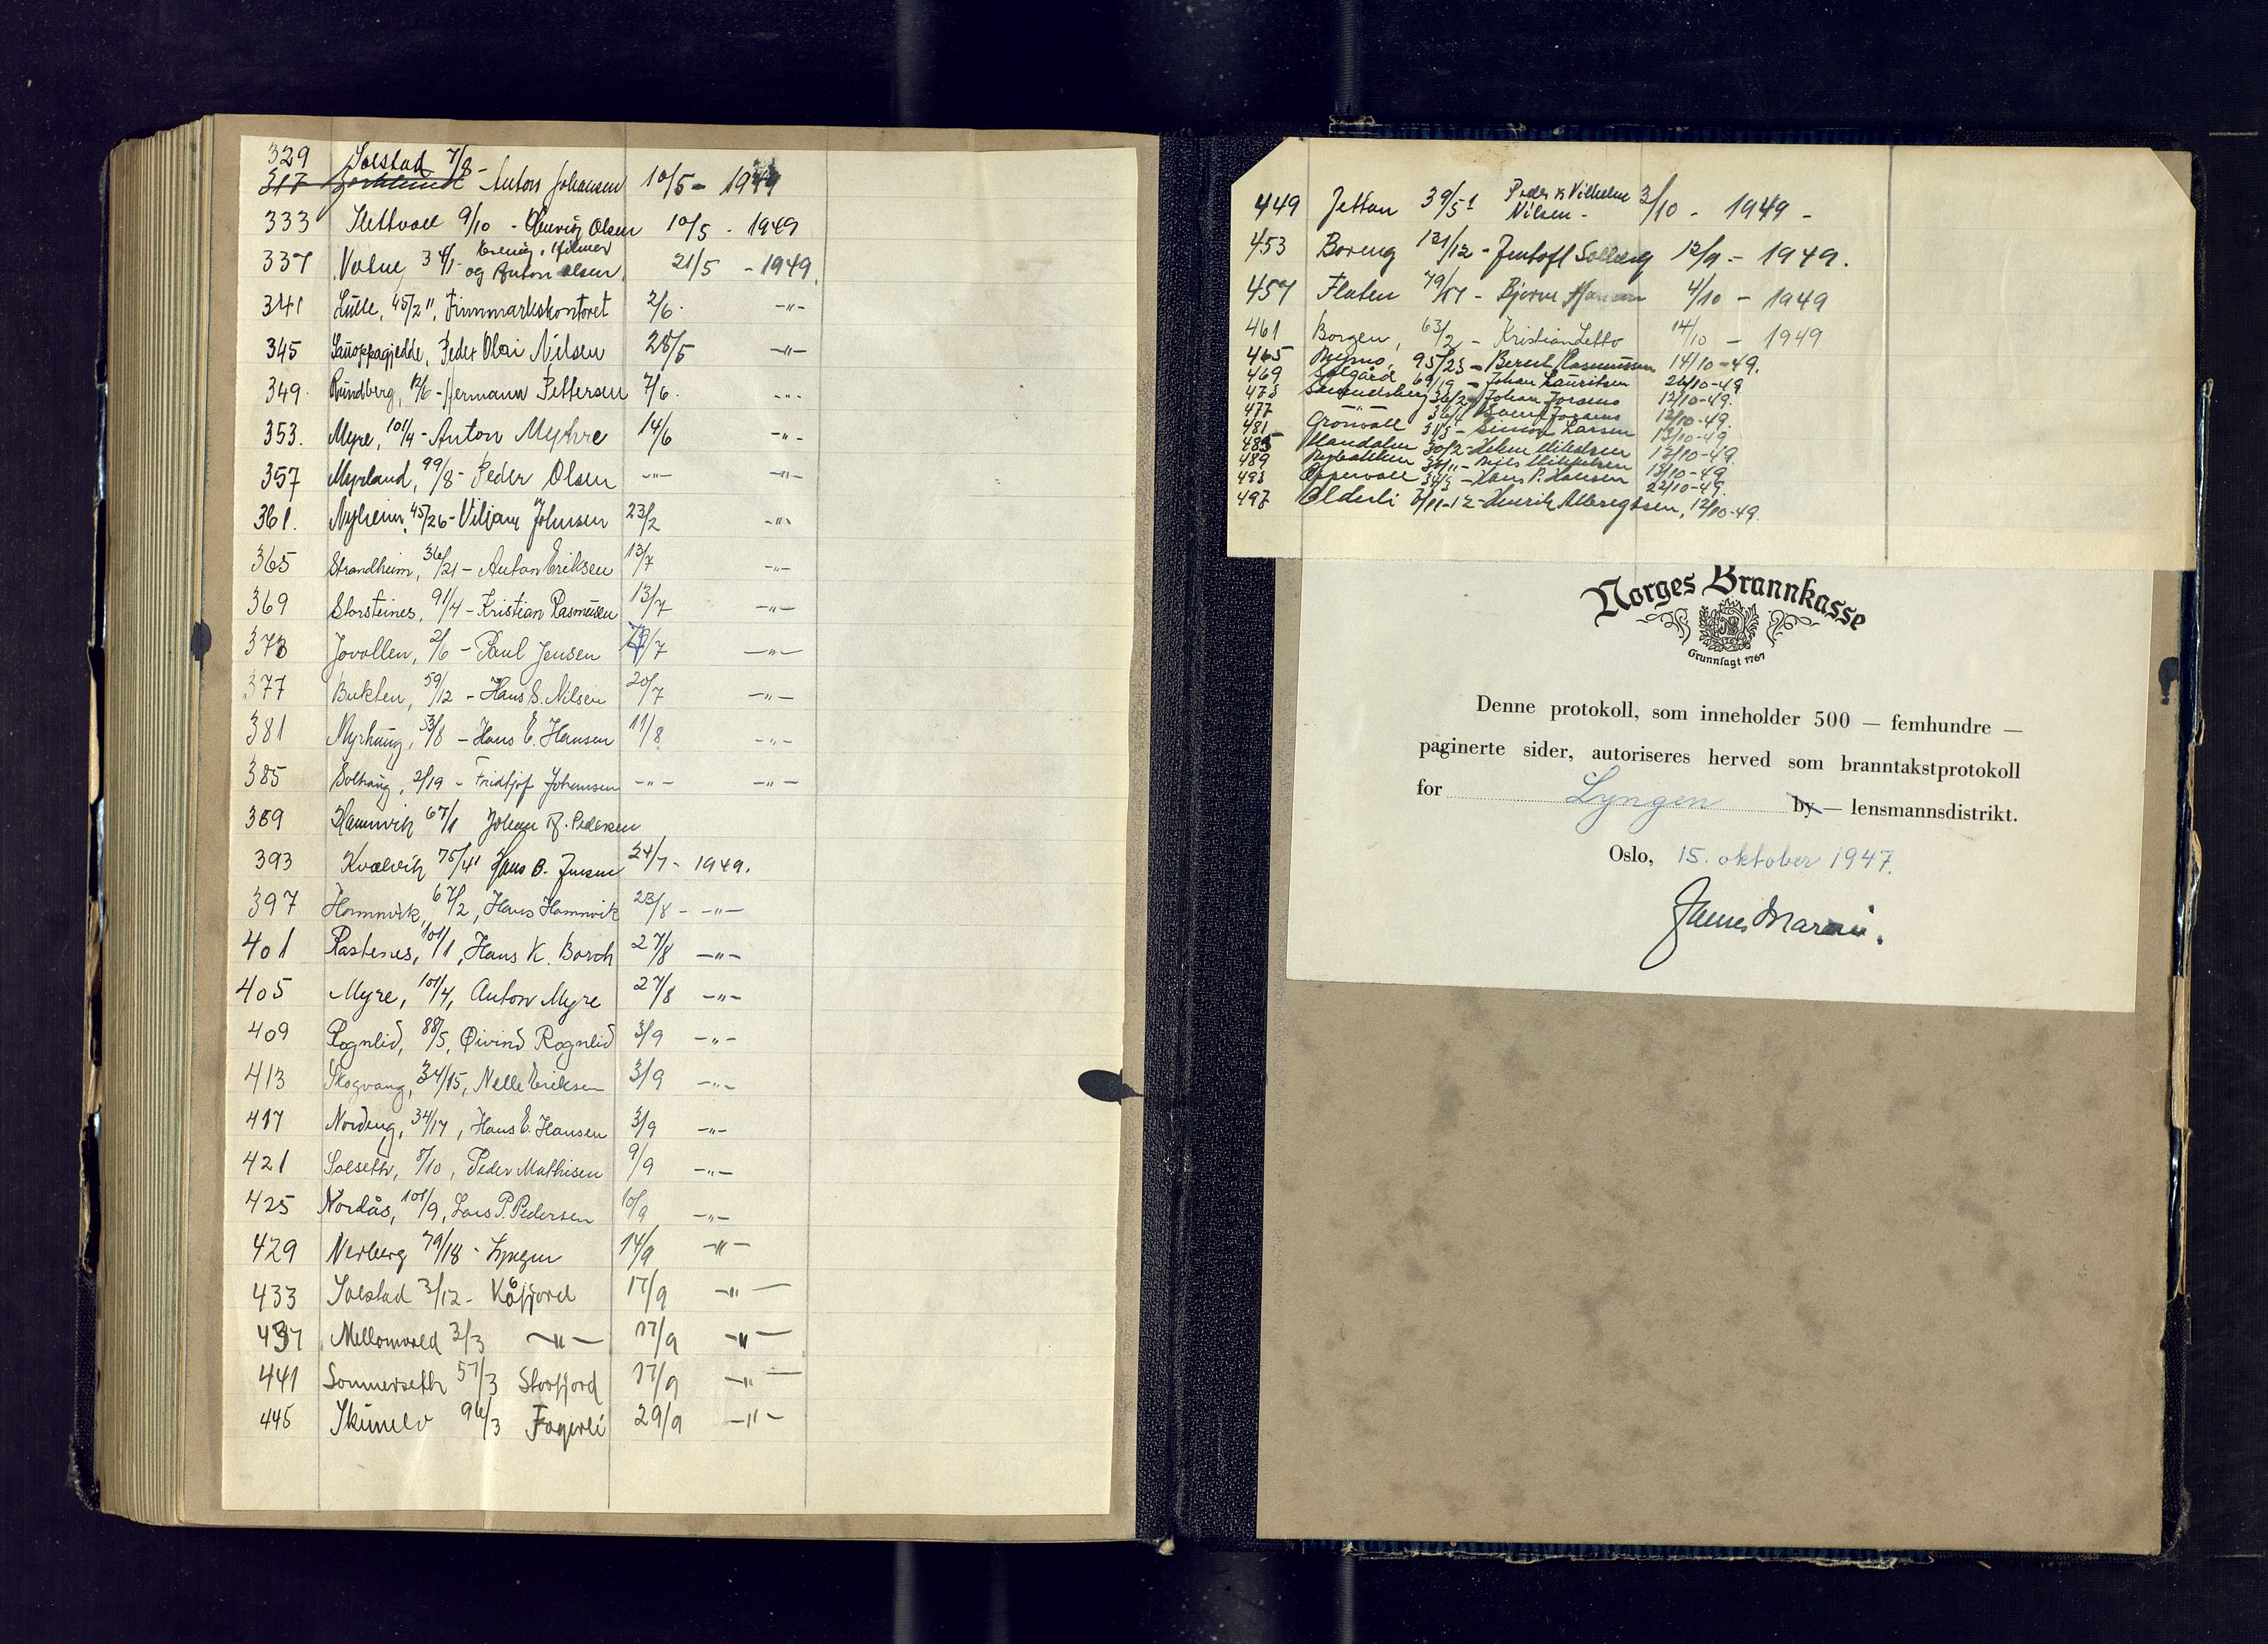 329 Solstad 7/8 -
317 Anton Johansen 10/5 - 1949
333 Slettvoll 9/10 - Olsen 10/5 - 1949
337 Hilmer
og Anton Olsen 21/5 - 1949.
341 Lulle, 45/2", Finnmarkskontoret 2/6. -"-
345 Peder Olai Nilsen 28/5 -"-
349. Rundberg, 12/6 - Hermann Pettersen 7/6. -"-
353. Myre, 101/4 - Anton Myhre 14/6 -"-
357 Myrland, 99/8 - Peder Olsen -"- -"-
361. Nyheim, 45/26 - Viljam Johnsen 23/2 -"-
365 Strandheim, 36/21 - Anton Eriksen 13/7 -"-
369 Storsteines, 91/4 - Kristian Rasmussen 13/7 -"-
373 Jovollen, 2/6 - Paul Jensen /7 -"-
377 Bukten, 59/12 - Hans S. Nilsen 20/7 -"-
381 Myrhaug, 53/8 - Hans E. Hansen 11/8 -"-
385 Solhaug, 2/19 - Fridtjof Johansen -"- -"-
389 Hamnvik 67/1 Johan Pedersen
393 Kvalvik 75/41 Hans B. Jensen 24/7 - 1949.
397 Hamnvik, 67/2, Hans Hamnvik 23/8 - -"-
401 Rastenes, 101/1, Hans K. Borch 27/8 -"-
405 Myre, 101/4, Anton Myre 27/8 -"-
409 Rognlid, 88/5, Øivind Rognlid 3/9 -"-
413 Skogvang, 34/15, Nelle Eriksen 3/9 -"-
417 Nordeng, 34/17, Hans E. Hansen 3/9 -"-
421 Solseth, 8/10, Peder Mathisen 9/9 -"-
425 Nordås, 101/9, Lars P. Pedersen 10/9 -"-
429 Nerberg 79/18 - Lyngen 14/9 -"-
433 Solstad 3/12 - Kåfjord 17/9 -"-
437 Mellomvold 3/3 -"- 17/9 -"-
441 Sommerseth 57/3 Storfjord 17/9 -"-
445 96/3 Fagerli 29/9 -"-
449 Jettan 39/51 Peder Vilhelm
Nilsen - 3/10 - 1949 -
453 Boreng 121/12 - Solberg 12/9 - 1949.
457 Flaten 79/57 - Bjarne Hansen 4/10 - 1949
461 Borgen, 63/2 - Kristian Letto 14/10 - 1949
465 Nymo, 95/23 - Bernt Rasmussen 14/10-49.
469 Solgård 69/19 - Johan Lauritsen 26/10-49
473 Johan 12/10-49.
477 12/10-49.
481 Grönvoll - Simon Larsen 13/10-49
485 Mandalen 30/2 - Mikalsen 12/10-49.
489 13/10-49
493 - Hans P. Hansen 22/10-49.
497 Olderli - Henrik 12/10-49.
Norges Brannkasse
Grunnlagt 1767
Denne protokoll, som inneholder 500 — femhundre —
paginerte sider, autoriseres herved som branntakstprotokoll
for Lyngen by — lensmannsdistrikt.
Oslo, 15. oktober 1947.